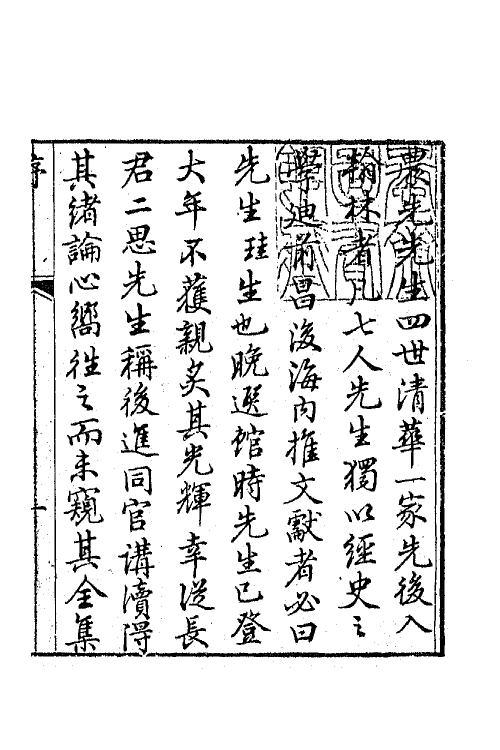 農先先生四世清華一家先後入
翰林者凡七人先生獨以經史之
學迪前昌後海内推文獻者必曰
先生珪生也晚選館時先生已登
大年不獲親炙其光輝幸從長
君二思先生稱後進同官講讀得
其緒論心嚮往之而未窺其全集
序
一